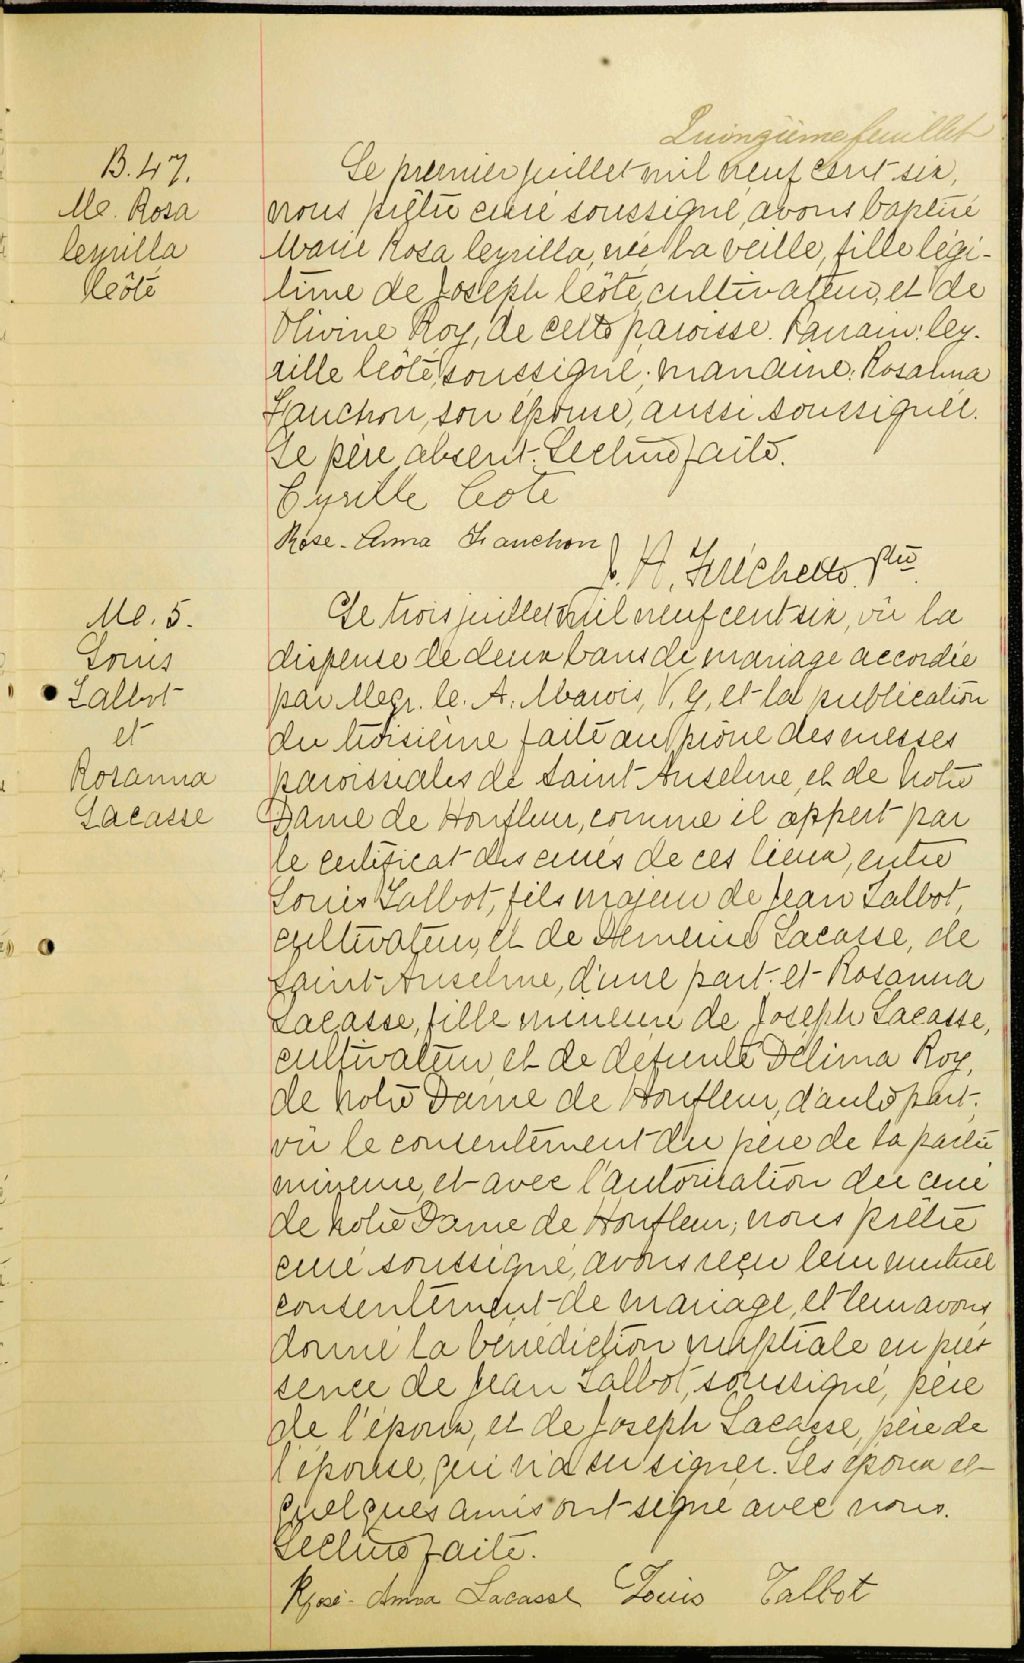 Quinzième feuillet
B. 47.
M. Rosa
Cyrilla
Côté
Le premier juillet mil neuf cent six,
nous prêtre curé soussigné, avons baptisé
Marie Rosa Cyrilla, née la veille, fille légi-
time de Joseph Côté, cultivateur, et de
Olivine Roy, de cette paroisse. Parrain: Cy-
rille Côté, soussigné; marraine: Rosanna
Fauchon, son épouse, aussi soussignée.
Le père absent. Lecture faite.
Cyrille Cote
Rose-Anna Fauchon
J. A. Fréchette, Ptre
M. 5.
Louis
Talbot
et
Rosanna
Lacasse
Le trois juillet mil neuf cent six, vû la
dispense de deux bans de mariage accordée
par Mgr. C. A. Marois, V. G, et la publication
du troisième faite au prône des messes
paroissiales de Saint Anselme, et de Notre
Dame de Honfleur, comme il appert par
le certificat des curés de ces lieux, entre
Louis Talbot, fils majeur de Jean Talbot,
cultivateur, et de Lacasse, de
Saint-Anselme, d'une part; et Rosanna
Lacasse, fille mineure de Joseph Lacasse,
cultivateur, et de défunte Délima Roy,
de Notre Dame de Honfleur, d'autre part;
vû le consentement du père de la partie
mineure, et avec l'autorisation du curé
de Notre Dame de Honfleur, nous prêtre
curé soussigné, avons reçu leur mutuel
consentement de mariage, et leur avons
donné la bénédiction nuptiale en pré-
sence de Jean Talbot, soussigné, père
de l'époux, et de Joseph Lacasse, père de
l'épouse, qui n'a su signer. Les époux et
quelques amis ont signé avec nous.
Lecture faite.
Rose-Anna Lacasse Louis Talbot